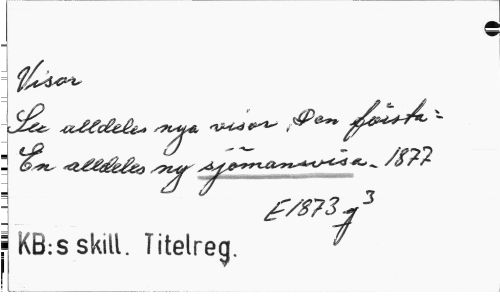 Visor
See alldeles nya visor. Den första:
En alldeles ny sjömansvisa. 1877
E1873g³
KB:s skill. Titelreg.